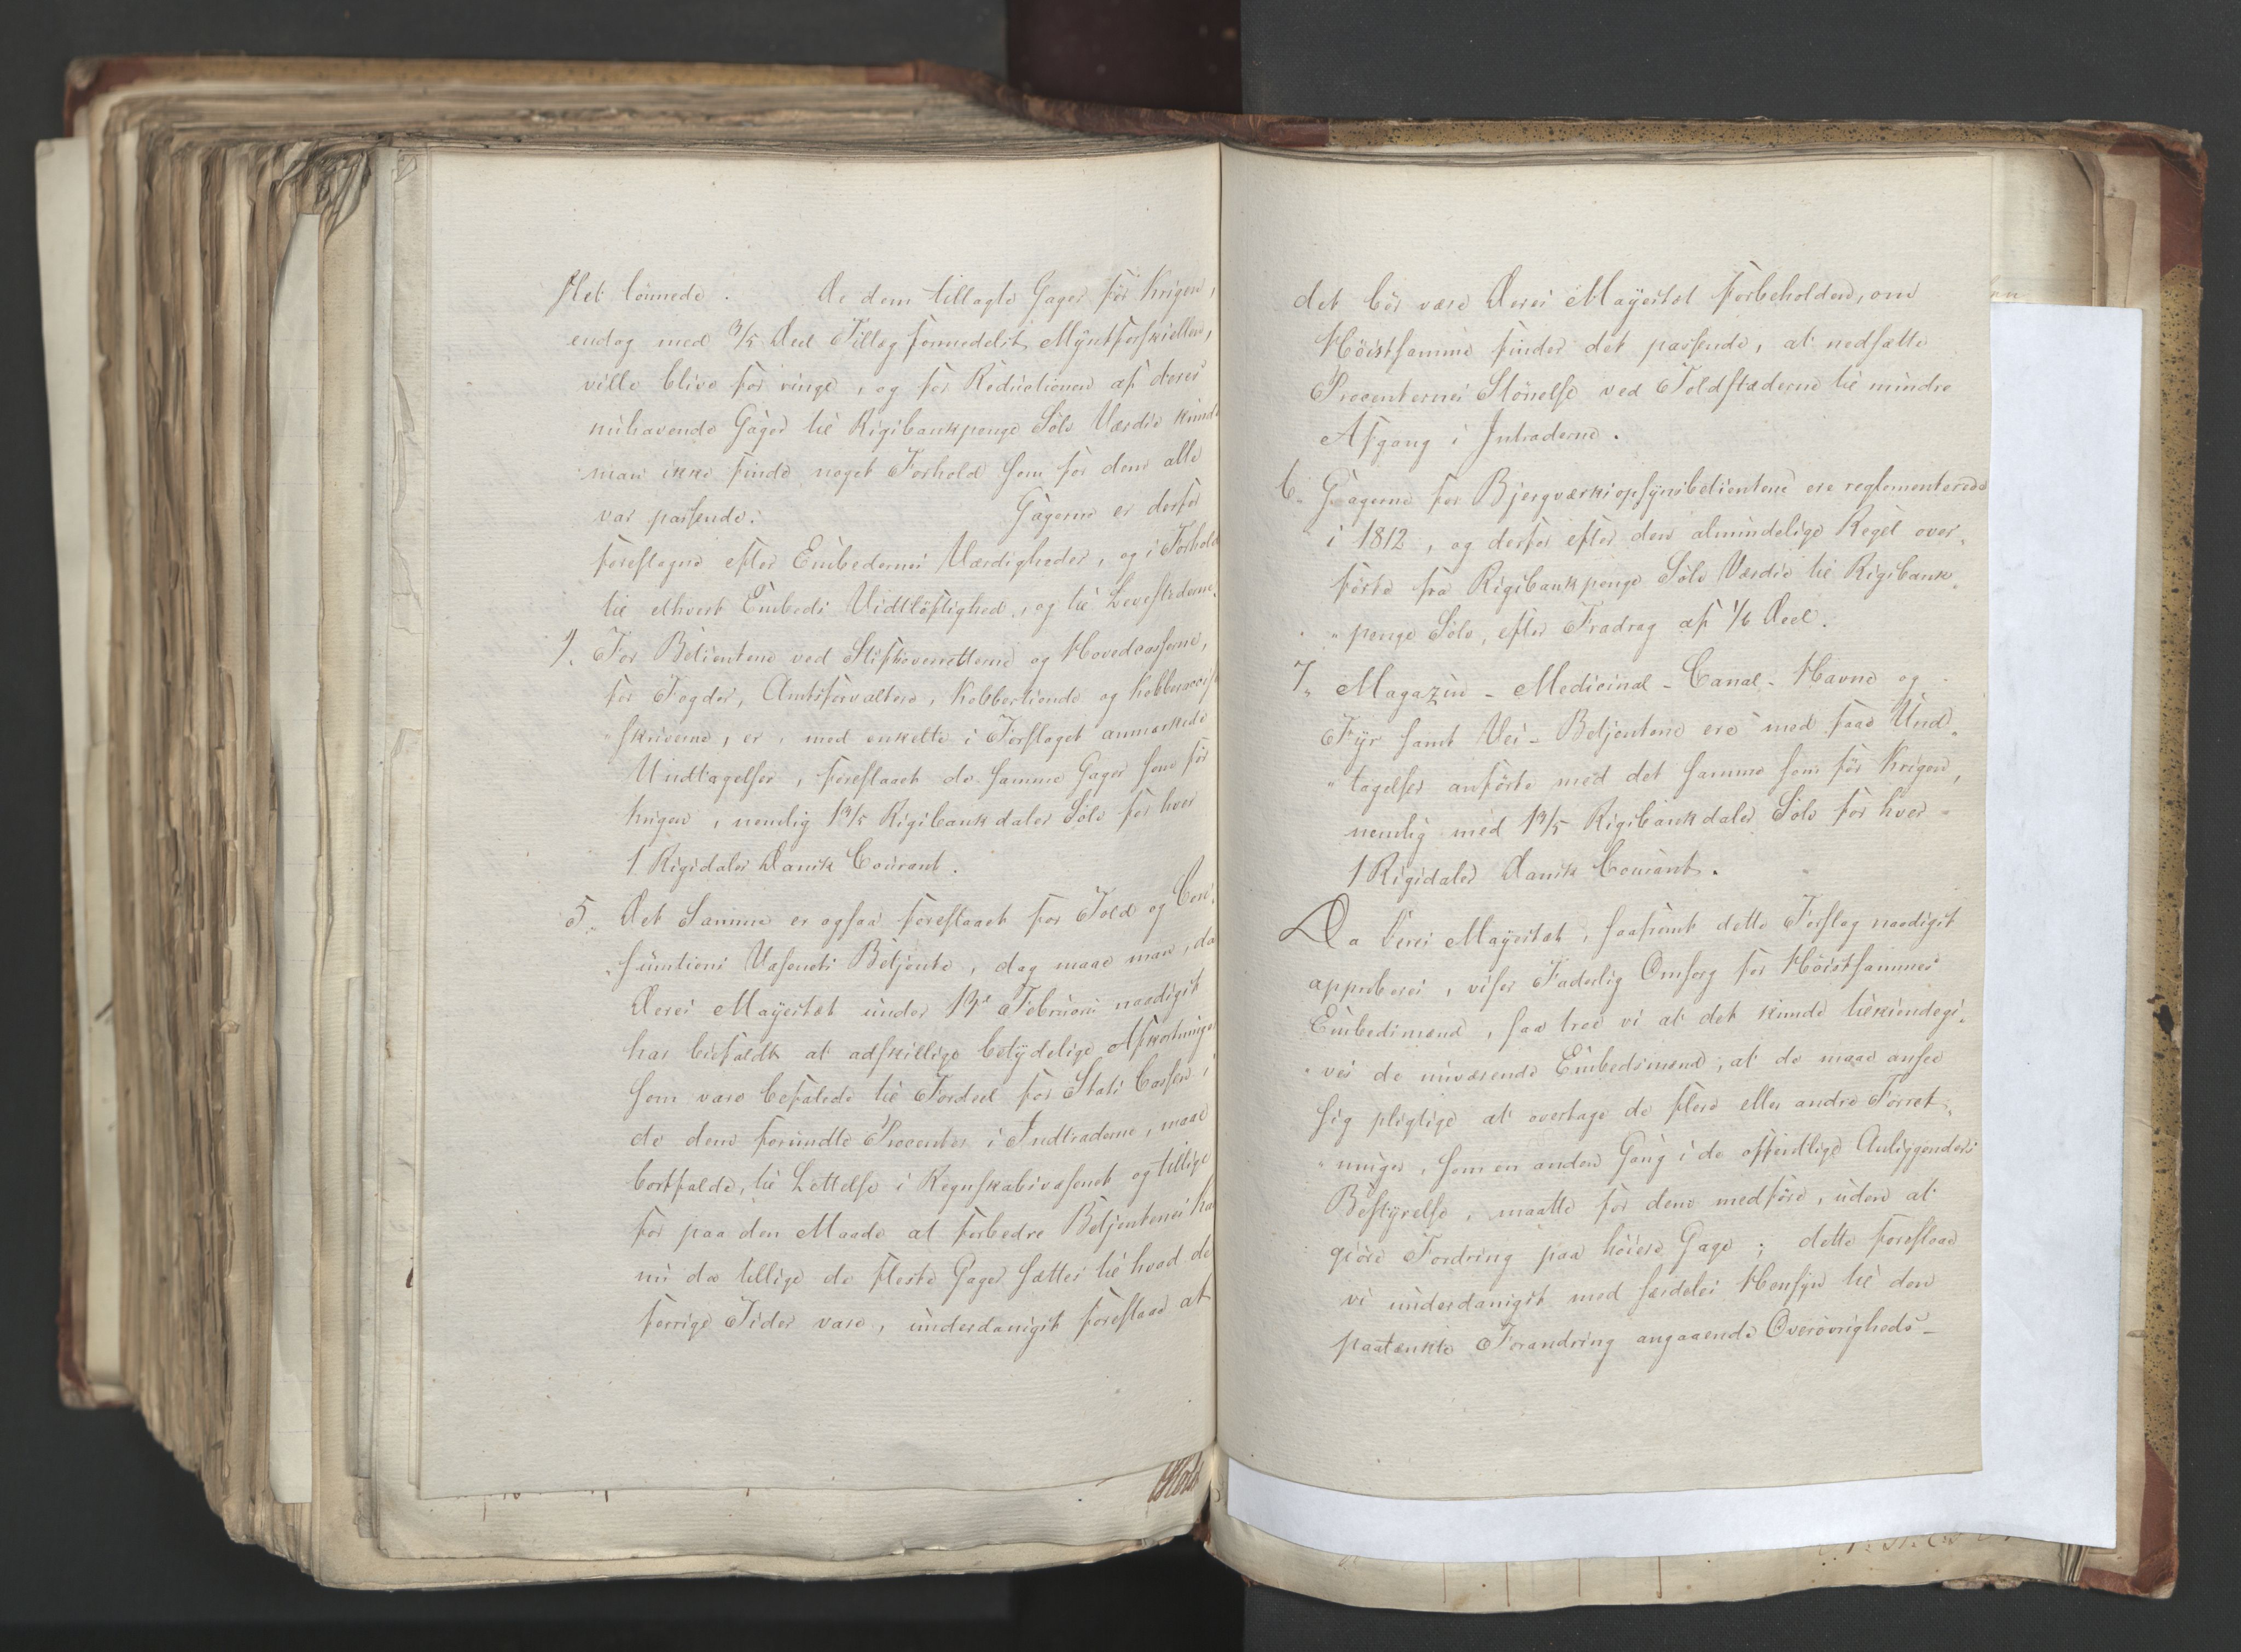 slet lönnede. De dem tillagte Gager för Krigen,
endog med 3/5 Deel Tillæg formedelst Myntforskiellen,
ville blive for ringe, og for Reductionen af deres
nuhavende Gager til Rigsbankpenge Sölv Værdie kunde
man ikke finde noget Forhold som for dem alle
var passende. Gagerne er derfor
foreslagne efter Embedernes Værdigheder, og i Forhold
til ethvert Embeds Vidtlöftighed, og til Levestederne.
4. For Betientene ved Stiftsoverretterne og Hovedcasserne,
for Fogder, Amtsforvaltere, Kobbertiende og
skriverne, er, med enkelte i Forslaget anmærkede
Undtagelser, foreslaaet de samme Gager som för
Krigen, nemlig 1 3/5 Rigsbankdaler Sölv for hver
1 Rigsdaler Dansk Courant.
5„ Det Samme er ogsaa foreslaaet for Told og Con„
„sumtions Væsenets Betjente, dog maae man, da
Deres Mayestæt under 13de Februari naadigst
har biefaldt at adskillige betydelige Afkortninger
som vare befalede til Fordeel for Stats Cassen i
de dem forundte Procenter i Indtraderne, maae
bortfalde, til Lettelse i Regnskabsvæsenet og tillige
for paa den Maade at forbedre Betjentenes Kaar
nu da tillige de fleste Gager sættes til hvad de
forrige Tider vare, underdanigst foreslaae at
det bör være Deres Mayestæt forbeholden, om
Höistsamme finder det passende, at nedsætte
Procenternes Störrelse ved Toldstæderne til mindre
Afgang i Intraderne.
6„ Gagerne for Bjergværksopsynsbetientene ere reglementerede
i 1812, og derfor efter den almindelige Regel over„
förte fra Rigsbankpenge Sölv Værdie til Rigsbank„
„penge Sölv, efter Fradrag af 1/6 Deel.
7„ Magazin - Medicinal - Canal - Havne og
Fyr samt Vei - Betjentene ere med faae Und„
„tagelser anförte med det samme som för Krigen,
nemlig med 1 3/5 Rigsbankdaler Sölv for hver
1 Rigsdaler Dansk Courant.
Da Deres Mayestæt, saafremt dette Forslag naadigst
approberes, viser Faderlig Omsorg for Höistsammes
Embedsmænd, saa troe vi at det kunde tilkiendegi„
„ves de nuværende Embedsmænd, at de maae ansee
sig pligtige at overtage de flere eller andre Forret„
„ninger, som en anden Gang i de offentlige Anliggenders
Bestyrelse, maatte for dem medföre, uden at
giöre Fordring paa höiere Gage; dette foreslaae
vi underdanigst med særdeles Hensyn til den
paatænkte Forandring angaaende Overövrigheds-